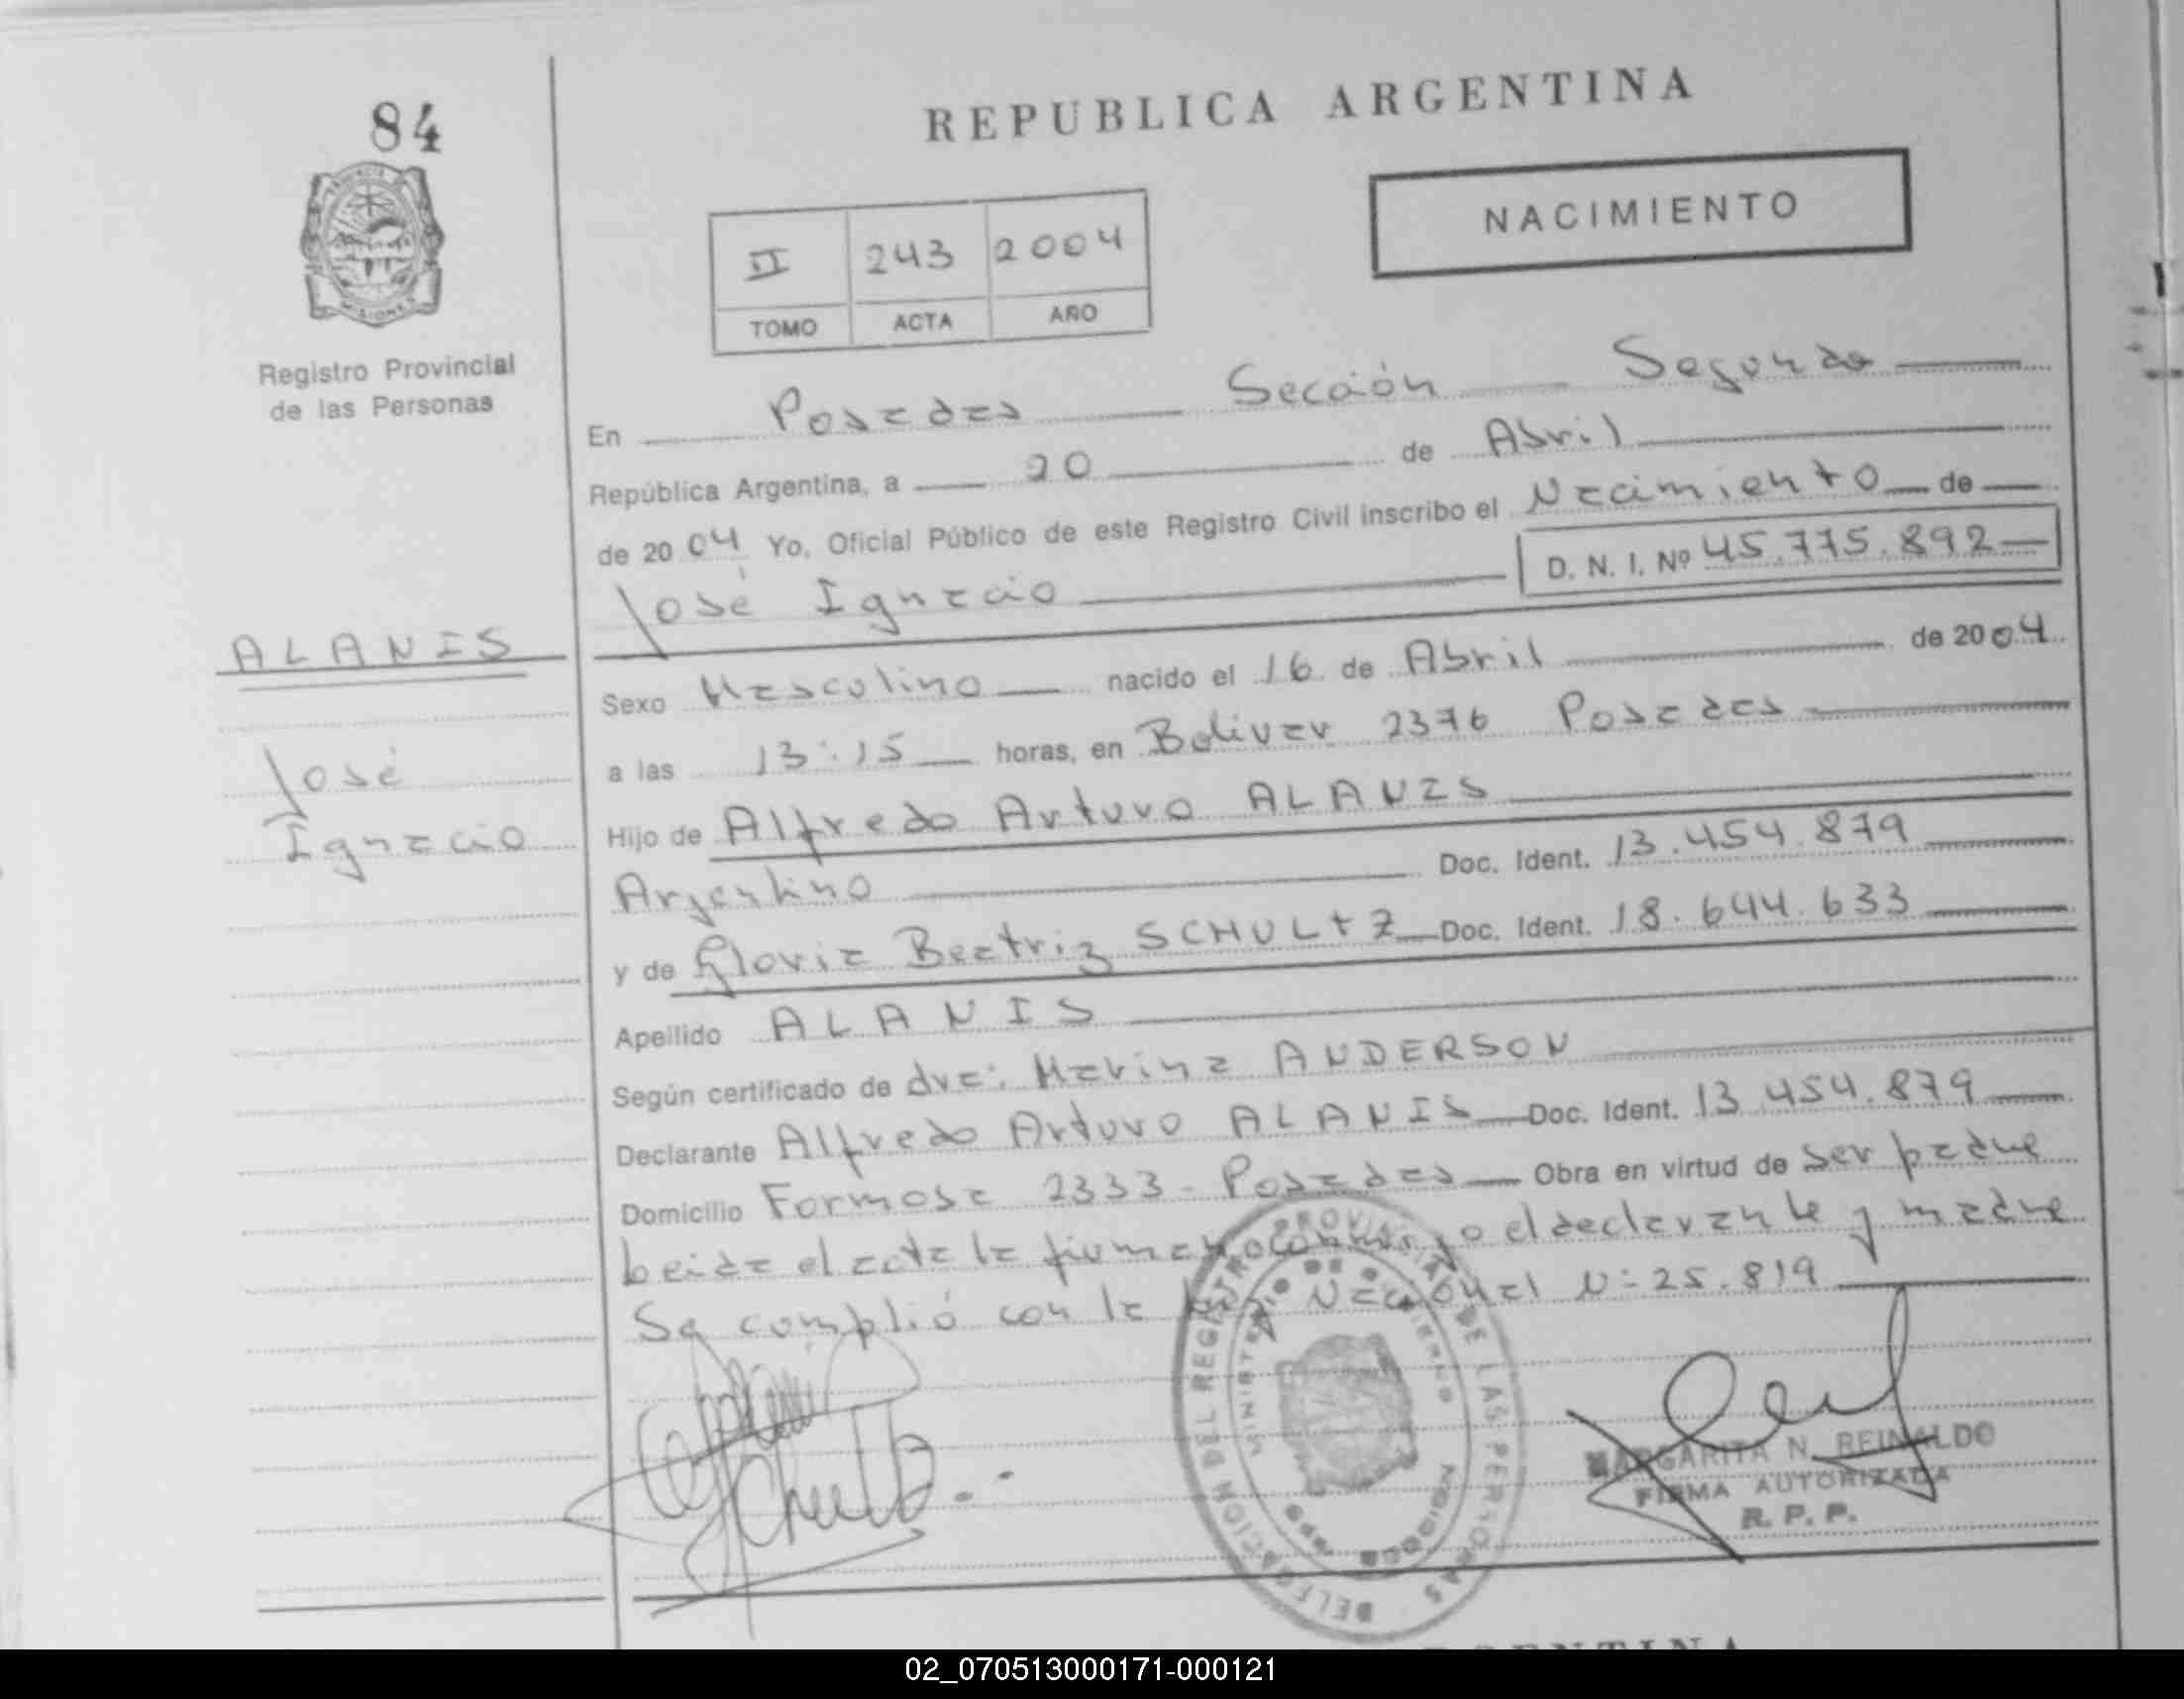 84
REPUBLICA ARGENTINA
NACIMIENTO
II 243 2004
TOMO ACTA AÑO
PROVINCIA DE
MISIONES
Registro Provincial
de las Personas
En Posadas Sección Segunda
República Argentina, a 20 de Abril
de 2004 Yo, Oficial Público de este Registro Civil inscribo el Nacimiento de
José Ignacio D. N. I. Nº 45.775.892
ALANIS
José
Ignacio
Sexo Masculino nacido el 16 de Abril de 2004
a las 13:15 horas, en Bolivar 2376 Posadas
Hijo de Alfredo Arturo ALANIS
Argentino Doc. Ident. 13.454.879
y de Gloria Beatriz SCHULtZ Doc. Ident. 18.644.633
Apellido ALANIS
Según certificado de dra: Marina ANDERSON
Declarante Alfredo Arturo ALANIS Doc. Ident. 13.454.879
Domicilio Formosa 2333 - Posadas Obra en virtud de ser padre
Leida el acta la firman conmigo el declarante y madre
Se cumplió con la Ley Nacional Nº 25.819
DELEGACION DEL REGISTRO PROVINCIAL DE LAS PERSONAS
MINISTERIO DE GOBIERNO
MISIONES
MARGARITA N. REINALDO
FIRMA AUTORIZADA
R. P. P.
02_070513000171-000121